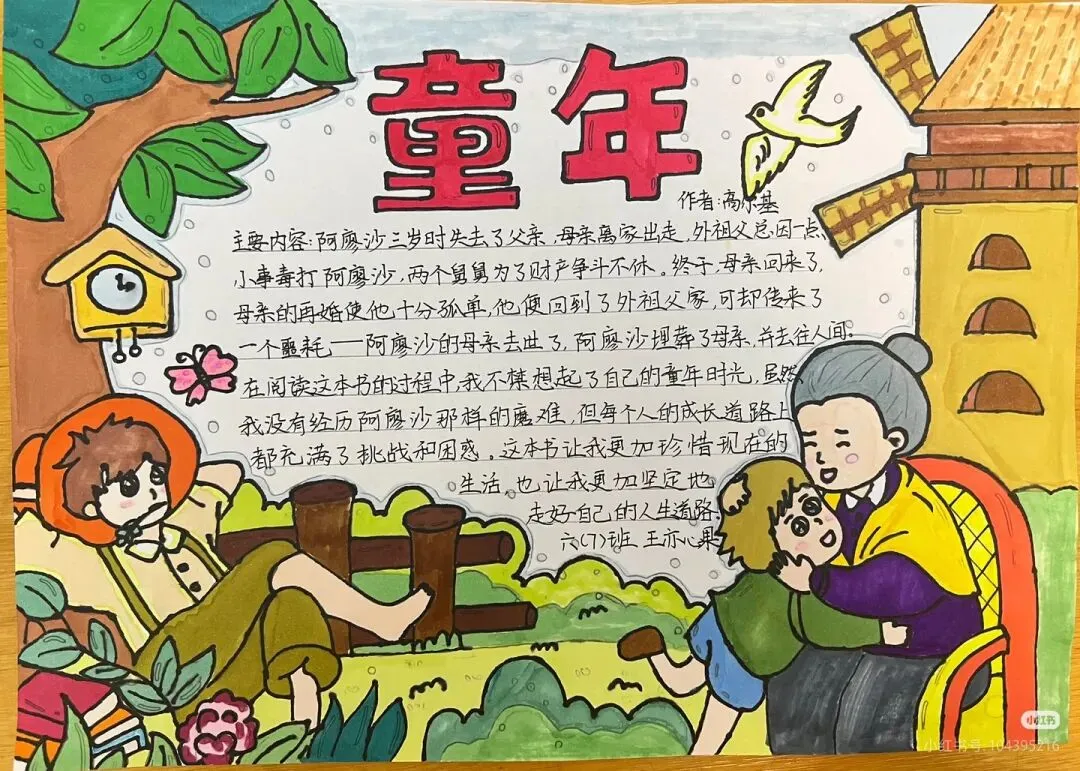 童年
作者:高尔基
主要内容:阿廖沙三岁时失去了父亲,母亲离家出走,外祖父总因一点
小事毒打阿廖沙,两个舅舅为了财产争斗不休。终于,母亲回来了,
母亲的再婚使他十分孤单,他便回到了外祖父家,可却传来了
一个噩耗——阿廖沙的母亲去世了,阿廖沙埋葬了母亲,并去往人间。
在阅读这本书的过程中,我不禁想起了自己的童年时光,虽然
我没有经历阿廖沙那样的磨难,但每个人的成长道路上
都充满了挑战和困惑。这本书让我更加珍惜现在的
生活,也让我更加坚定地
走好自己的人生道路。
六(7)班 王亦心果
小红书
小红书号: 104395216